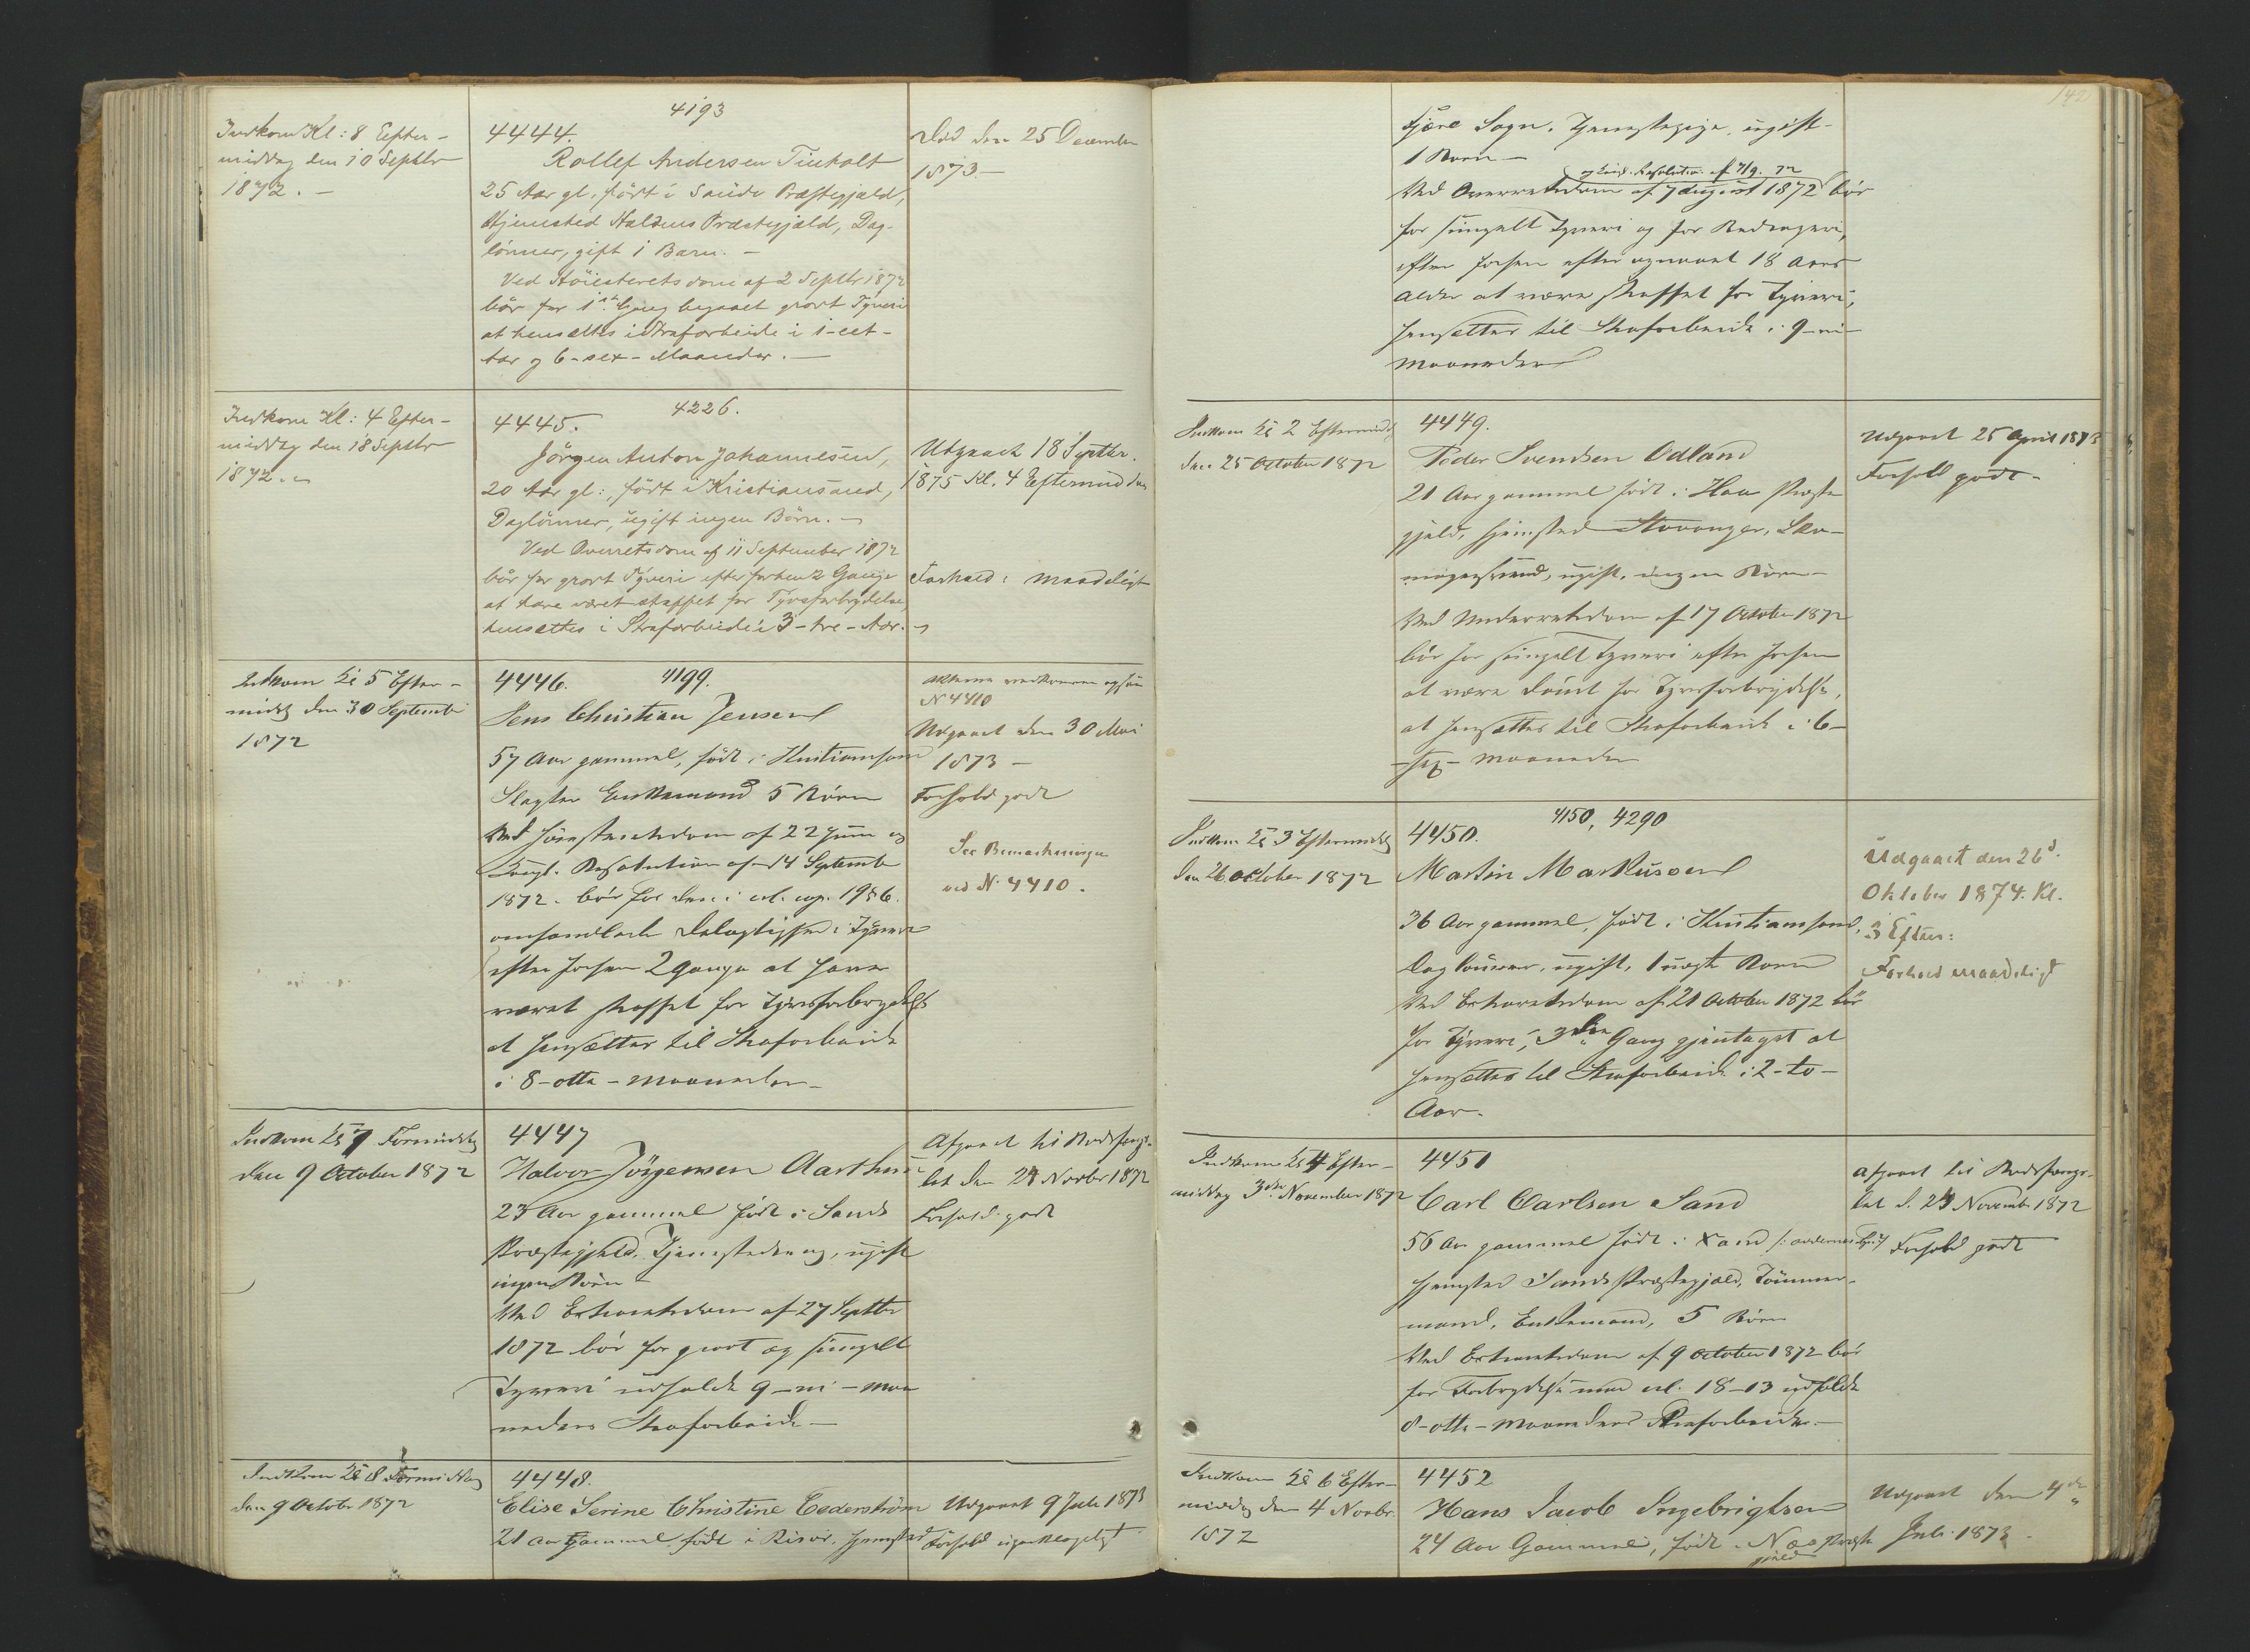 Indkom Kl: 8 Efter-
middag den 10 Septbr
1872. -
4193
4444.
Rollef Andersen Tinholt
25 Aar gl., født i Saude Præstegjæld,
Hjemsted Haldens Præstegjæld, Dag-
lönner, gift 1 Barn. -
Ved Höiesteretsdom af 2 Septbr 1872
bör for 1ste Gang begaaet grovt Tyveri
at hensættes i Strafarbeide i 1-eet-
Aar og 6-sex-Maaneder. -
Död den 25 December
1873. -
Indkom Kl: 4 Efter-
middag den 18 Septbr
1872. -
4226.
4445.
Jörgen Anton Johannesen,
20 Aar gl:, født i Kristiansund,
Daglönner, ugift ingen Börn. -
Ved Overretsdom af 11 September 1872
bör for grovt Tyveri efter forhen 2 Gange
at have været straffet for Tyvsforbrydelse,
hensættes i Strafarbeide i 3-tre-Aar. -
Udgaaet 18 Septbr.
1875 Kl. 4 Eftermiddag
Forhold: maadeligt
Indkom Kl 5 Efter-
middag den 30 Septembr
1872
4446. 4199.
Jens Christian Jensen
57 Aar gammel, født i Kristiansand
Slagter Enkemand 5 Börn
Ved Höiesteretsdom af 22 Juni og
Kongl. Resolution af 14 Septembr
1872. bör for den i crl. cap. 19 § 6.
omhandlede Delagtighed i Tyveri
efter forhen 2 Gange at have
været straffet for Tyvsforbrydelse
at hensættes til Strafarbeide
i 8-otte-Maaneder-
Akterne vedkommer ogsaa
N 4410
Udgaaet den 30 Mai
1873 -
Forhold godt
See Bemærkningen
ved N. 4410.
Indkom Kl 7 Formiddag
den 9 October 1872
4447
Halvor Jörgensen Aarthun
23 Aar gammel født i Sands
Præstegjæld, Tjenestedreng, ugift
ingen Börn -
Ved Extraretsdom af 27 Septbr
1872 bör for grovt og simpelt
Tyveri udholde 9-ni-Maa
neders Strafarbeide -
Afgaaet til Bodsfængs-
let den 29 Novbr 1872
Forhold godt
Indkom Kl 8 Formiddag
den 9 October 1872
4448.
Elise Serine Christine Cederström
21 Aar gammel født i Risör, Hjemsted
Udgaaet 9 Juli 1873
Forhold upaaklageligt
Fjære Sogn. Tjenestepige, ugift-
1 Barn -
og kond. Resolution af 7/9. 72
Ved Overretsdom af 7 August 1872 bör
for simpelt Tyveri og for Bedrageri,
efter forhen efter opnaaet 18 Aars
Alder at være straffet for Tyveri,
hensættes til Strafarbeide i 9-ni-
Maaneder
Indkom Kl 2 Eftermiddag
den 25 October 1872
4449.
Peder Svendsen Odland
21 Aar gammel født i Haa Præste
gjæld, Hjemsted Stavanger, Sko-
magersvend, ugift, ingen Börn -
Ved Underretsdom af 17 October 1872
bör for simpelt Tyveri efter forhen
at være dömt for Tyvsforbrydelse,
at hensættes til Strafarbeide i 6-
-sex- Maaneder
Udgaaet 25 April 1873
Forhold godt -
Indkom Kl 3 Eftermiddag
den 26 October 1872
4150, 4290
4450.
Martin Markusen
36 Aar gammel, født i Kristiansand,
Daglönner, ugift, 1 uægte Barn
Ved Extraretsdom af 21 October 1872 bör
for Tyveri, 3die Gang gjentaget at
hensættes til Strafarbeide i 2-to-
Aar.
Udgaaet den 26d.
Oktober 1874. Kl.
3 Efterm:
Forhold maadeligt
Indkom Kl 4 Efter-
middag 3die November 1872
4451
Carl Carlsen Sand
56 Aar gammel født i Sand
Hjemsted Sands Præstegjæld, Tömmer-
mand, Enkemand, 5 Börn
Ved Extraretsdom af 9 October 1872 bör
for Forbrydelse mod crl. 18-13 udholde
8-otte-Maaneders Strafarbeide. -
Afgaaet til Bodsfængs-
let d. 29 Novembr 1872
Forhold godt
Indkom Kl 6 Efter-
middag den 4 Novbr.
1872
4452
Hans Jacob Ingebrigtsen
24 Aar Gammel, født i Næs Præste
gjæld
Udgaaet den 4de
Juli 1873.